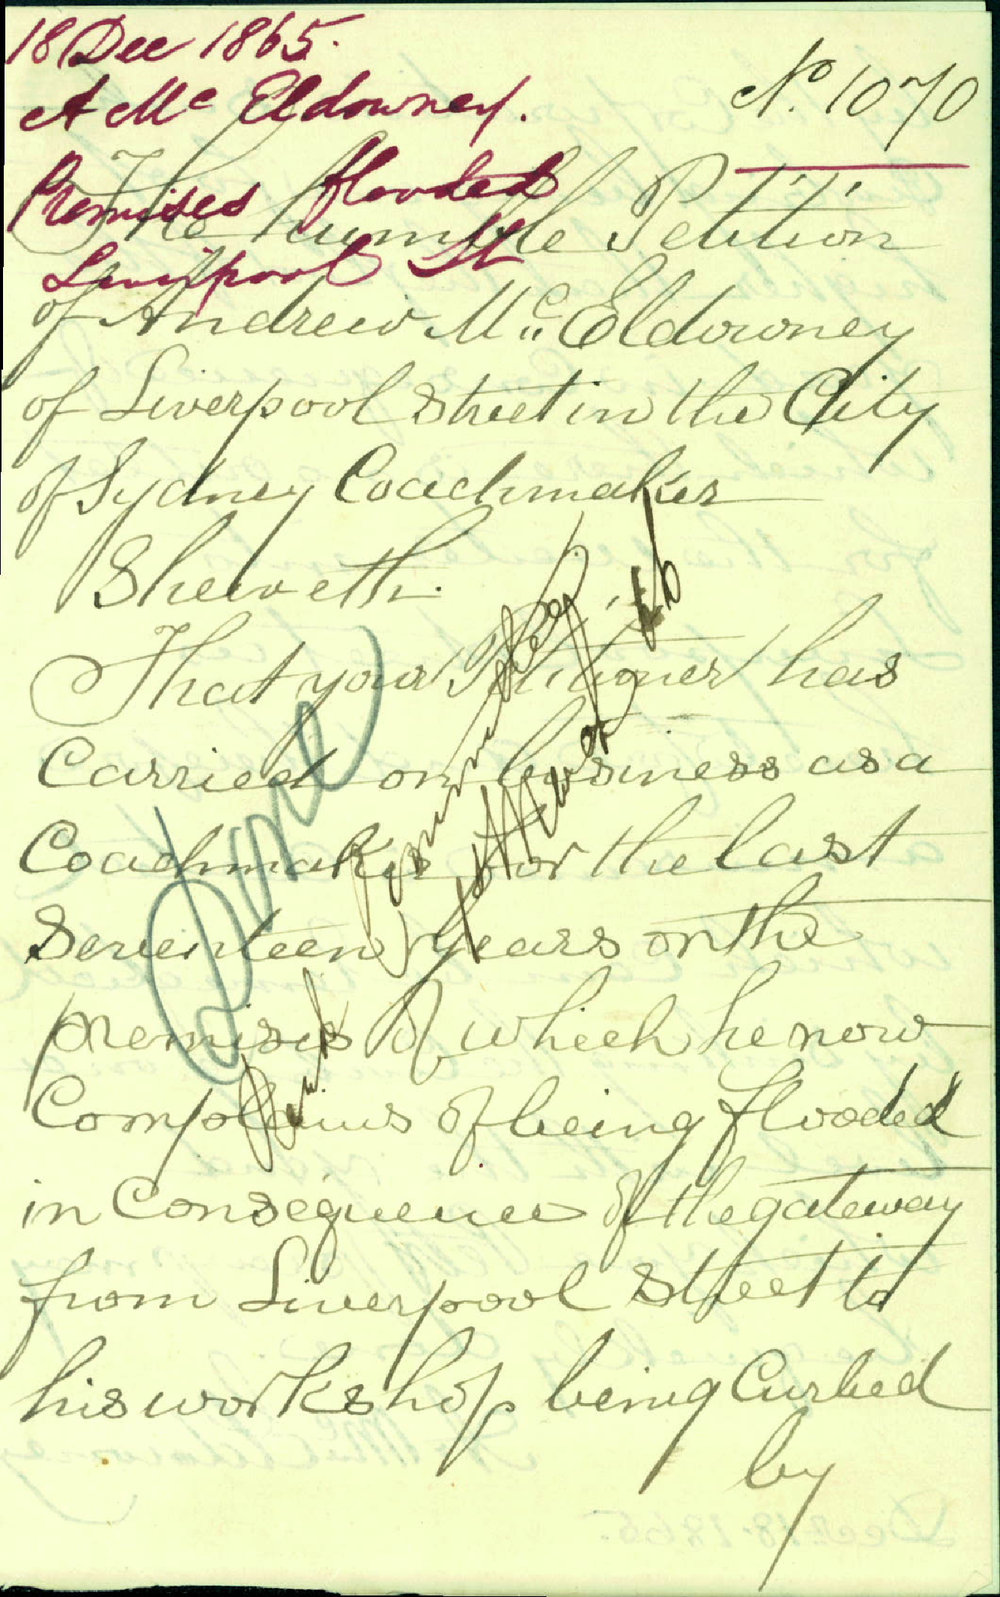 18 Dec 1865.
A Mc Eldowney.
No. 1070
Premises flooded
Liverpool St
The humble Petition
of Andrew Mc Eldowney
of Liverpool Street in the City
of Sydney Coachmaker
Sheweth.
That your Petitioner has
Carried on business as a
Coachmaker for the last
Seventeen Years on the
premises of which he now
Complains of being flooded
in Consequence of the gateway
from Liverpool Street to
his workshop being Curbed
by
Done